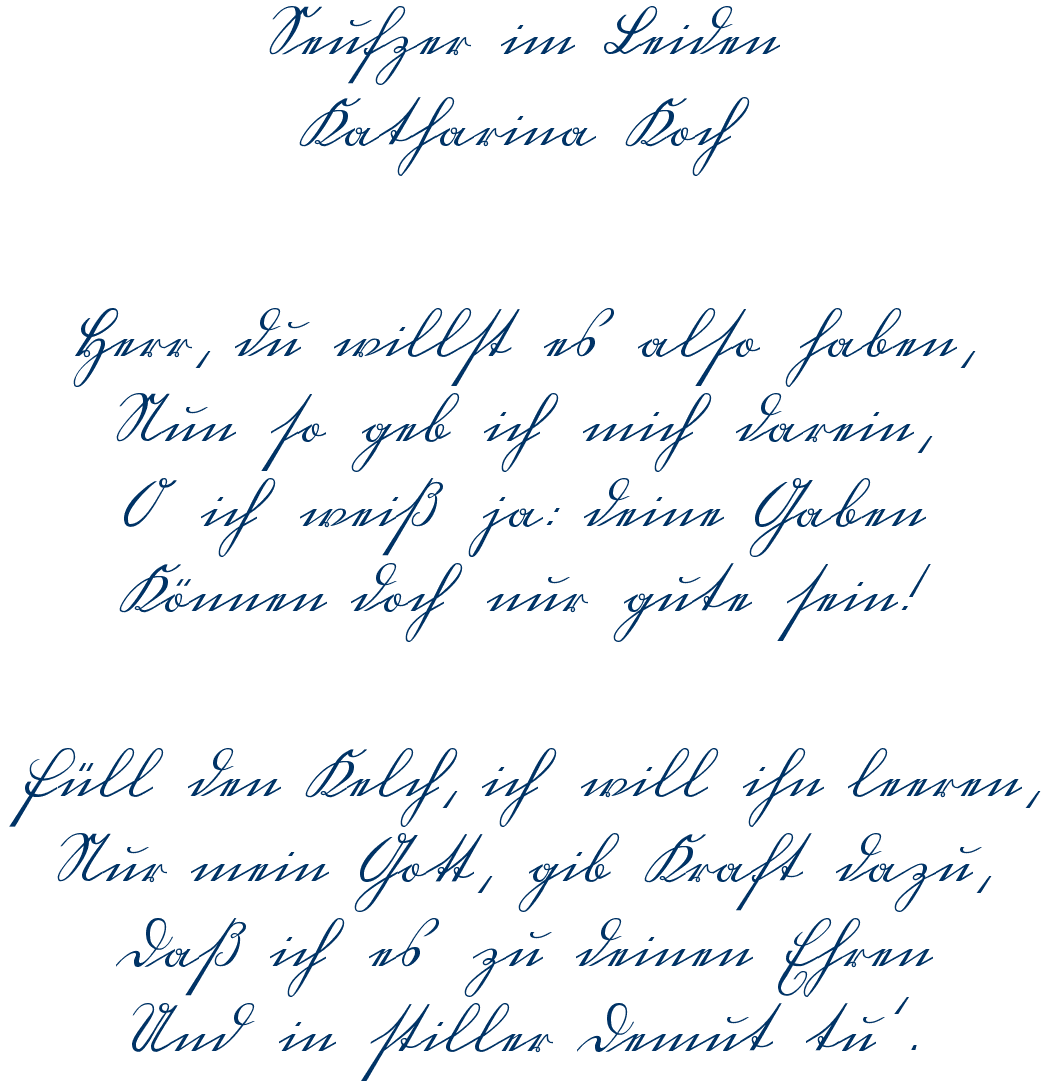 Seufzer im Leiden
Katharina Koch
Herr, du willst es also haben,
Nun so geb ich mich darein,
O ich weiß ja: deine Gaben
Können doch nur gute sein!
Füll den Kelch, ich will ihn leeren,
Nur mein Gott, gib Kraft dazu,
Daß ich es zu deinen Ehren
Und in stiller Demut tu'.